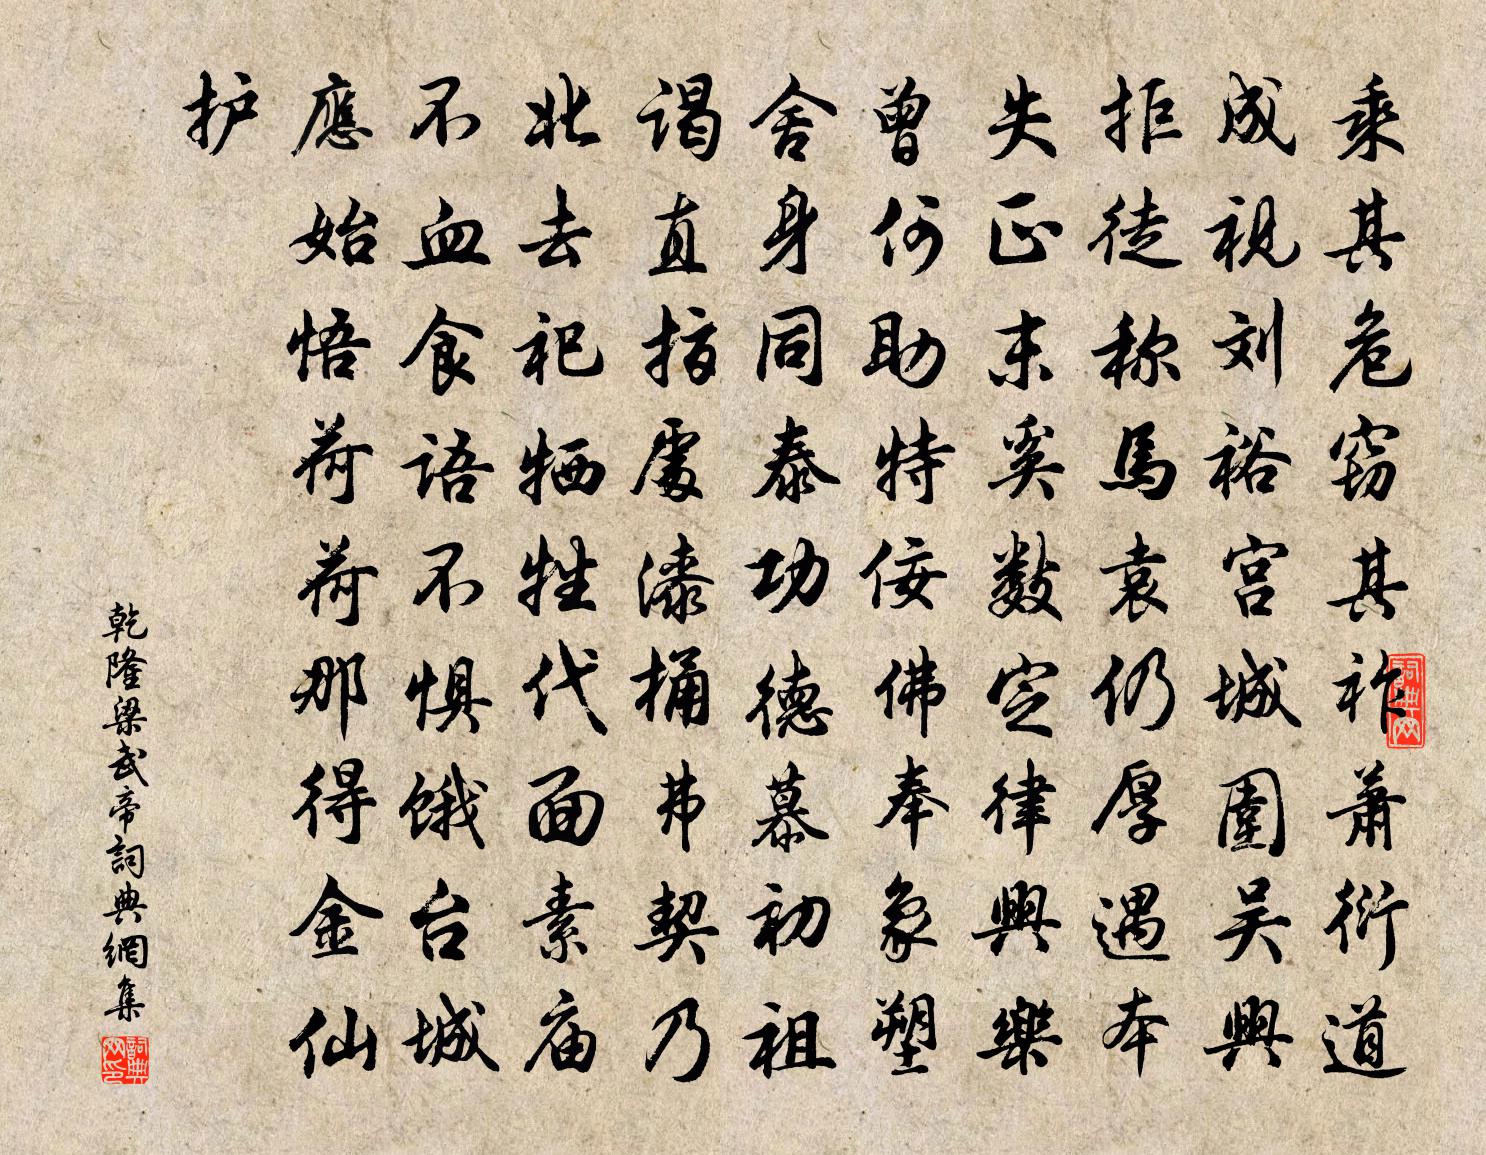 乘其危窃其祚萧衍道
成视刘裕宫城围吴興
拒徒称馬袁仍厚遇本
失正末奚数定律興樂
曾何助特佞佛奉象塑
舍身同泰功德慕初祖
谒直指處漆桶弗契乃
北去祀牺牲代面素庙
不血食語不惧饿台城
應始悟荷荷那得金仙
护
乾隆梁武帝詞典網集
詞典网
詞典网印